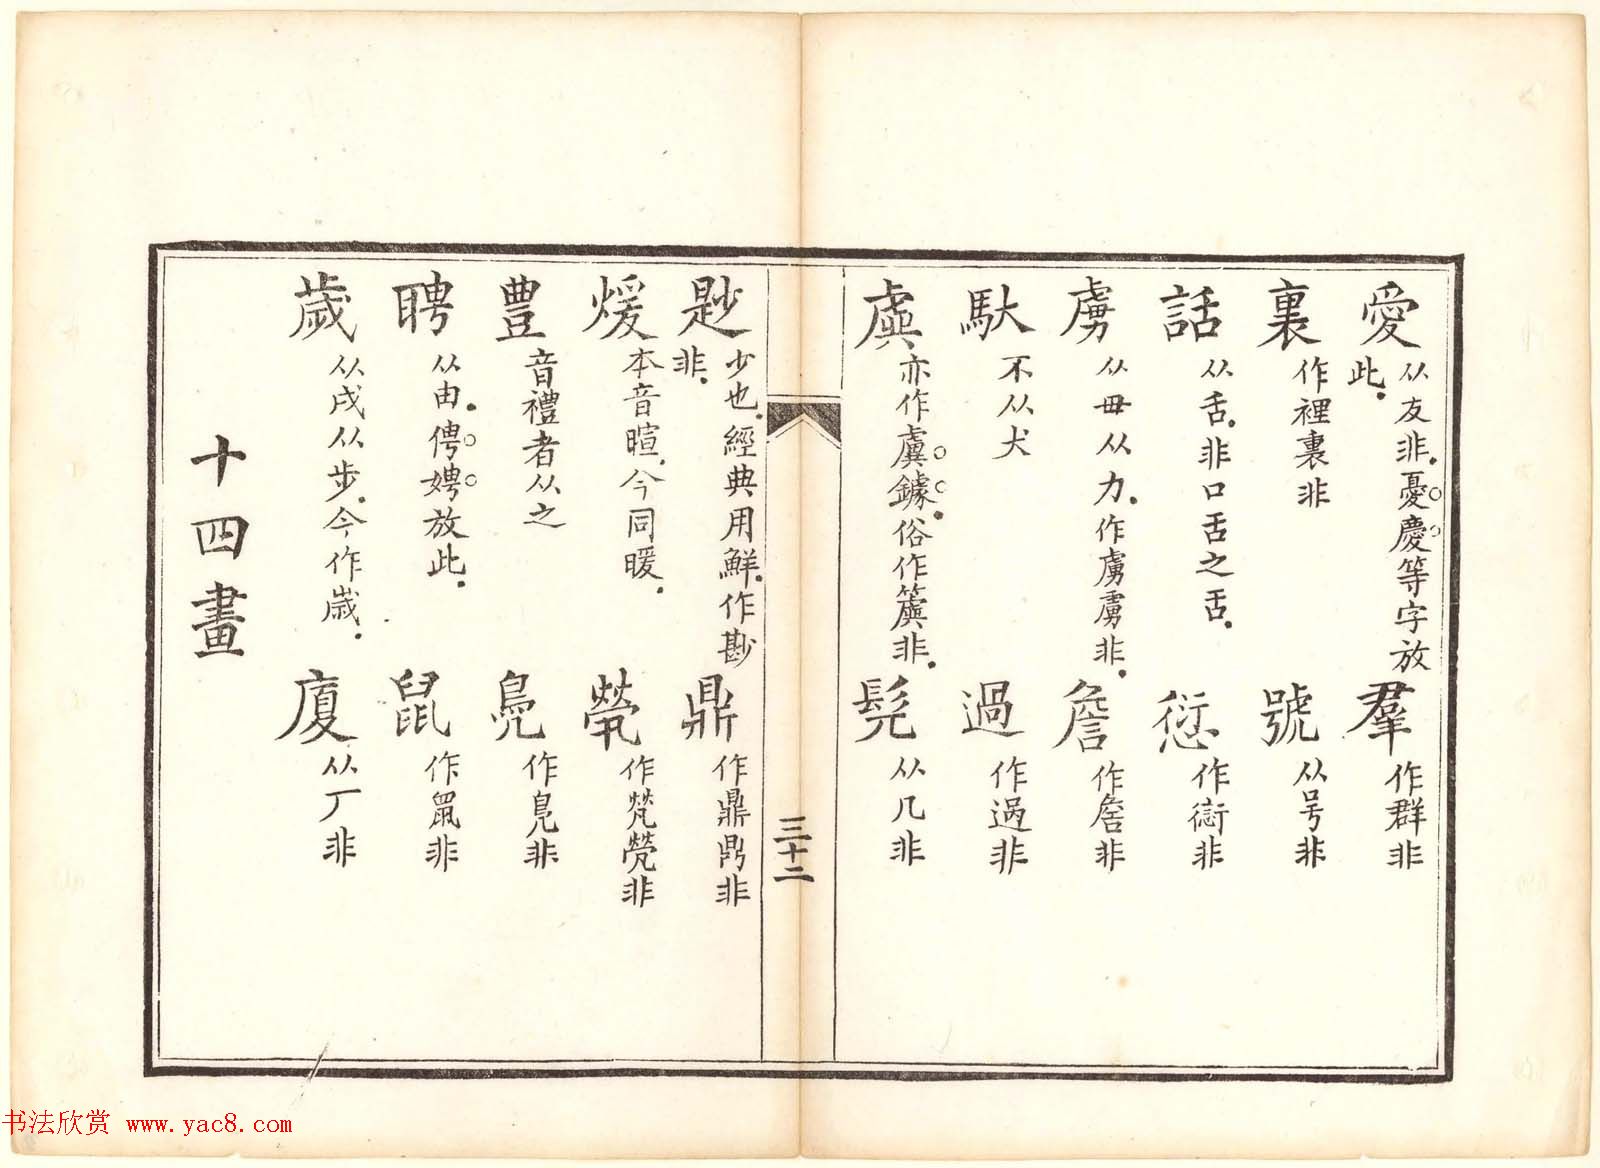 愛 从友非。憂慶等字放此。
羣 作群非
裏 作裡裏非
號 从号非
話 从舌。非口舌之舌。
愆 作諐非
虜 从毌从力。作虜非。
詹 作詹非
馱 不从犬
過 作過非
虡 亦作虞鐻。俗作簴非。
髡 从几非
三十二
尟 少也。經典用鮮。作尠非。
鼎 作鼎非
煖 本音暄。今同暖。
煢 作焭㷀非
豊 音禮者从之
鳧 作鳬非
聘 从由。俜娉放此。
鼠 作鼡非
歲 从戌从步。今作歳。
廈 从厂非
十四畫
书法欣赏 www.yac8.com